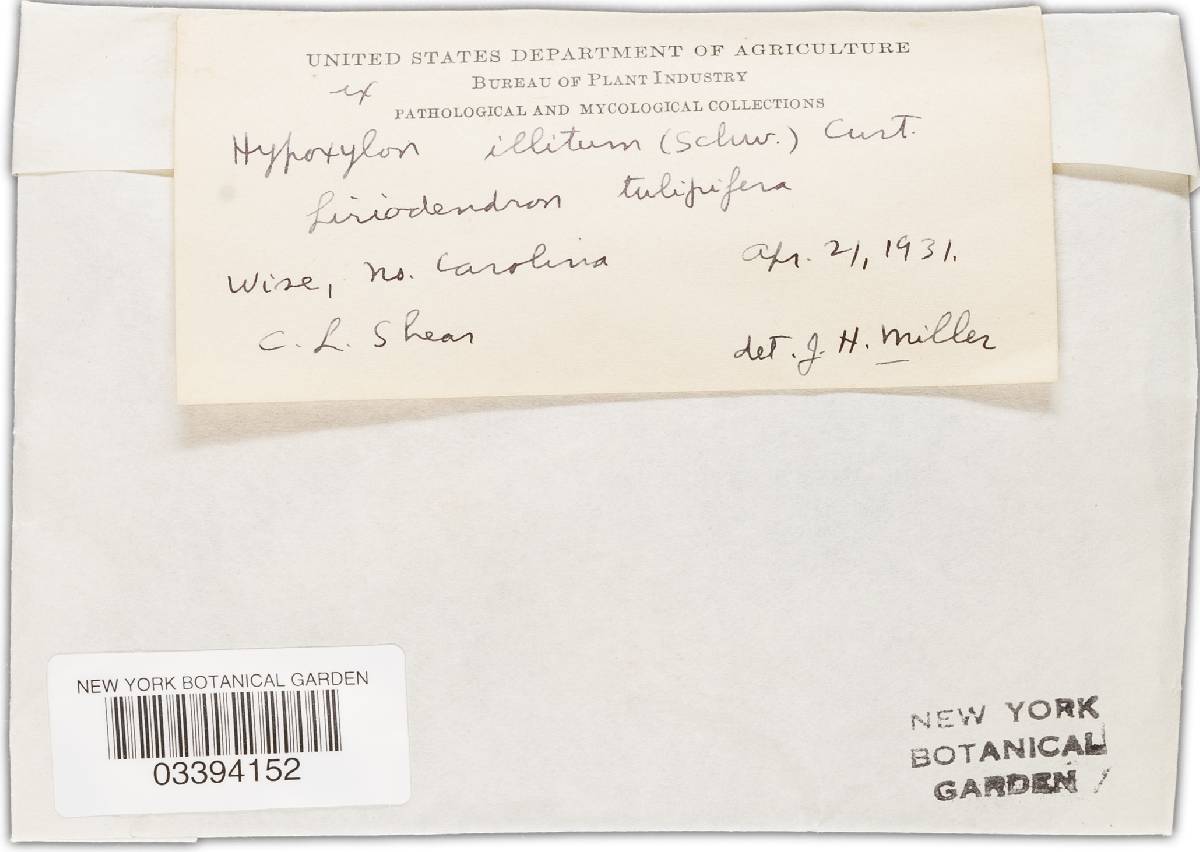 UNITED STATES DEPARTMENT OF AGRICULTURE
BUREAU OF PLANT INDUSTRY
ex
PATHOLOGICAL AND MYCOLOGICAL COLLECTIONS
Hypoxylon illitum (Schw.) Curt.
Liriodendron tulipifera
Wise, No. Carolina Apr. 21, 1931.
C. L. Shear det. J. H. Miller
NEW YORK BOTANICAL GARDEN
03394152
NEW YORK
BOTANICAL
GARDEN